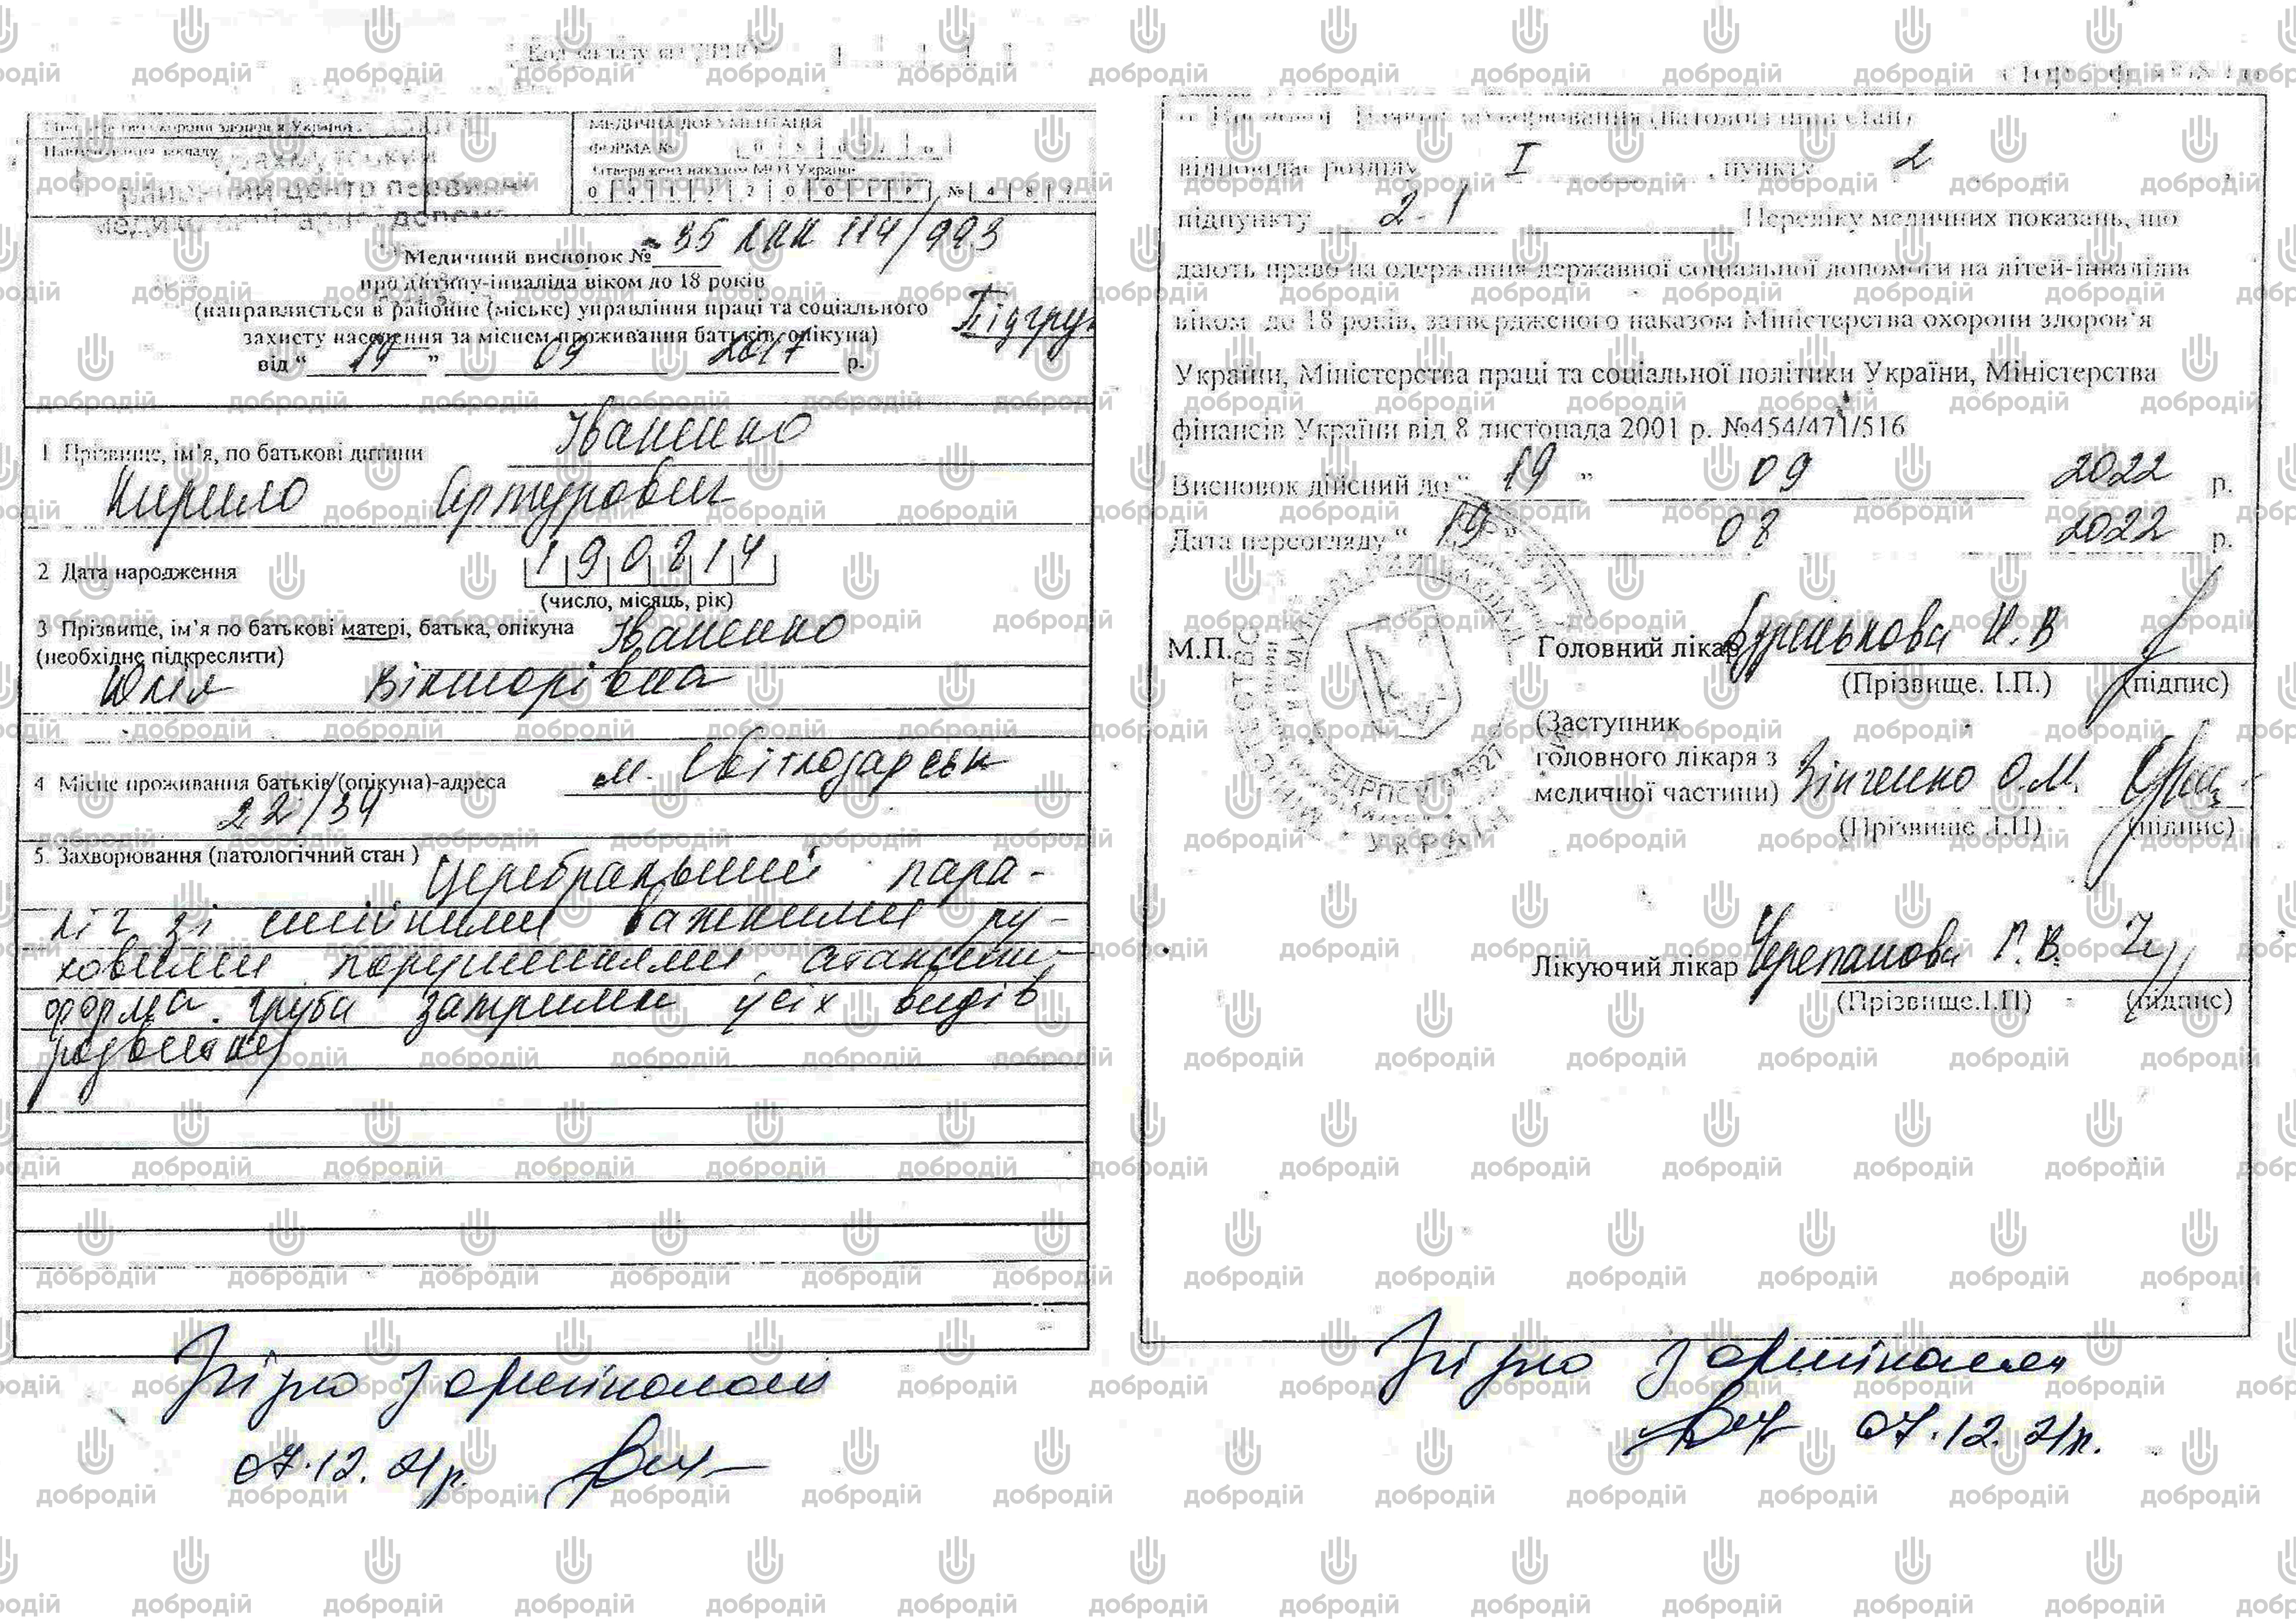 Код закладу за
Міністерство охорони здоров'я України
Найменування закладу
районний центр первинної
МЕДИЧНА ДОКУМЕНТАЦІЯ
ФОРМА №
Затверджена наказом МОЗ України
0 4 1 2 2 0 0 1 Р № 4 8 2
Медичний висновок № 35 ЛКК 114/993
про дитину-інваліда віком до 18 років
(направляється в районне (міське) управління праці та соціального
захисту населення за місцем проживання батьків, опікуна)
Підгру
від “ 19 ” 09 2017 р.
1 Прізвище, ім'я, по батькові дитини Іваненко
Кирило Артурович
2 Дата народження 1 9 0 8 1 4
(число, місяць, рік)
3 Прізвище, ім'я по батькові матері, батька, опікуна Іваненко
(необхідне підкреслити)
Юлія Вікторівна
4 Місце проживання батьків/(опікуна)-адреса м. Світлодарськ
22/34
5. Захворювання (патологічний стан ) Церебральний пара-
ліч зі стійкими важкими ру-
ховими порушеннями, атактична
форма. Груба затримка усіх видів
розвитку
Згідно з оригіналом
07.12.21р.
6. Висновок Наявне захворювання (патологічний стан)
відповідає розділу I , пункту 2 ,
підпункту 2.1 Переліку медичних показань, що
дають право на одержання державної соціальної допомоги на дітей-інвалідів
віком до 18 років, затвердженого наказом Міністерства охорони здоров'я
України, Міністерства праці та соціальної політики України, Міністерства
фінансів України від 8 листопада 2001 р. №454/471/516
Висновок дійсний до “ 19 ” 09 2022 р.
Дата переогляду “ 19 ” 08 2022 р.
М.П.
Головний лікар Н.В
(Прізвище. І.П.) (підпис)
(Заступник
головного лікаря з
медичної частини) Зінченко О.М.
(Прізвище .І.П) (підпис)
Лікуючий лікар Черепанова Г.В.
(Прізвище.І.П) (підпис)
УКРАЇНА
Згідно з оригіналом
07.12.21р.
добродій